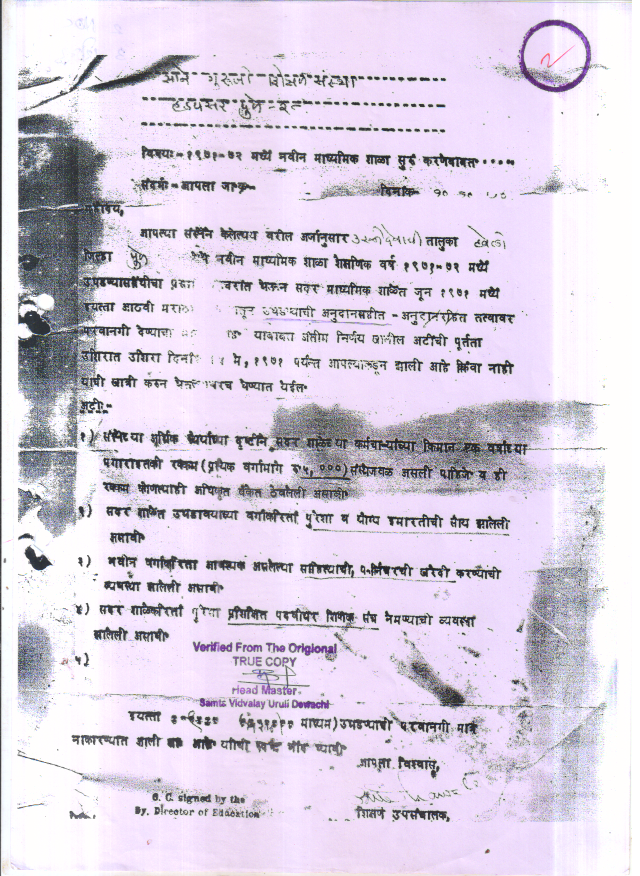 २
साने गुरुजी शिक्षण संस्था
हडपसर पुणे-२८
विषय:- १९७१-७२ मध्ये नवीन माध्यमिक शाळा सुरु करणेबाबत
संदर्भ:- आपला जा.क्र. दिनांक १०
महोदय,
आपल्या संस्थेने केलेल्या वरील अर्जानुसार उरुळीदेवाची तालुका हवेली
जिल्हा पुणे येथे नवीन माध्यमिक शाळा शैक्षणिक वर्ष १९७१-७२ मध्ये
उघडण्यासंबंधीचा विचारात घेऊन सदर माध्यमिक शाळेत जून १९७१ मध्ये
इयत्ता आठवी मराठी उघडण्याची अनुदानसहीत - अनुदानरहित तत्वावर
परवानगी देण्याचा याबाबत अंतीम निर्णय खालील अटींची पूर्तता
उशिरात उशिरा दिनांक मे, १९७१ पर्यन्त आपल्याकडून झाली आहे किंवा नाही
याची खात्री करुन घेण्यात येईल.
अटी:-
१) संस्थेच्या आर्थिक स्थैर्याच्या दृष्टीने सदर शाळेच्या कर्मचाऱ्यांच्या किमान एक वर्षाच्या
पगाराइतकी रक्कम (प्रत्येक वर्गामागे रु ५, ०००) संस्थेजवळ असली पाहिजे व ही
रक्कम कोणत्याही अधिकृत बँकेत ठेवलेली असावी.
२) सदर शाळेत उघडावयाच्या वर्गाकरिता पुरेशा व योग्य इमारतीची सोय झालेली
असावी.
३) नवीन वर्गाकरिता आवश्यक असलेल्या साहित्याची, फर्निचरची खरेदी करण्याची
व्यवस्था झालेली असावी.
४) सदर शाळेकरिता पुरेशा प्रशिक्षित पदवीधर शिक्षक संच नेमण्याची व्यवस्था
झालेली असावी.
५)
Verified From The Origional
TRUE COPY
Head Master
Samts Vidyalay Uruli Dewachi
इयत्ता माध्यम) उघडण्याची परवानगी मात्र
नाकारण्यात आली आहे याची नोंद घ्यावी.
आपला विश्वासू,
O. C. signed by the
Dy. Director of Education
शिक्षण उपसंचालक,